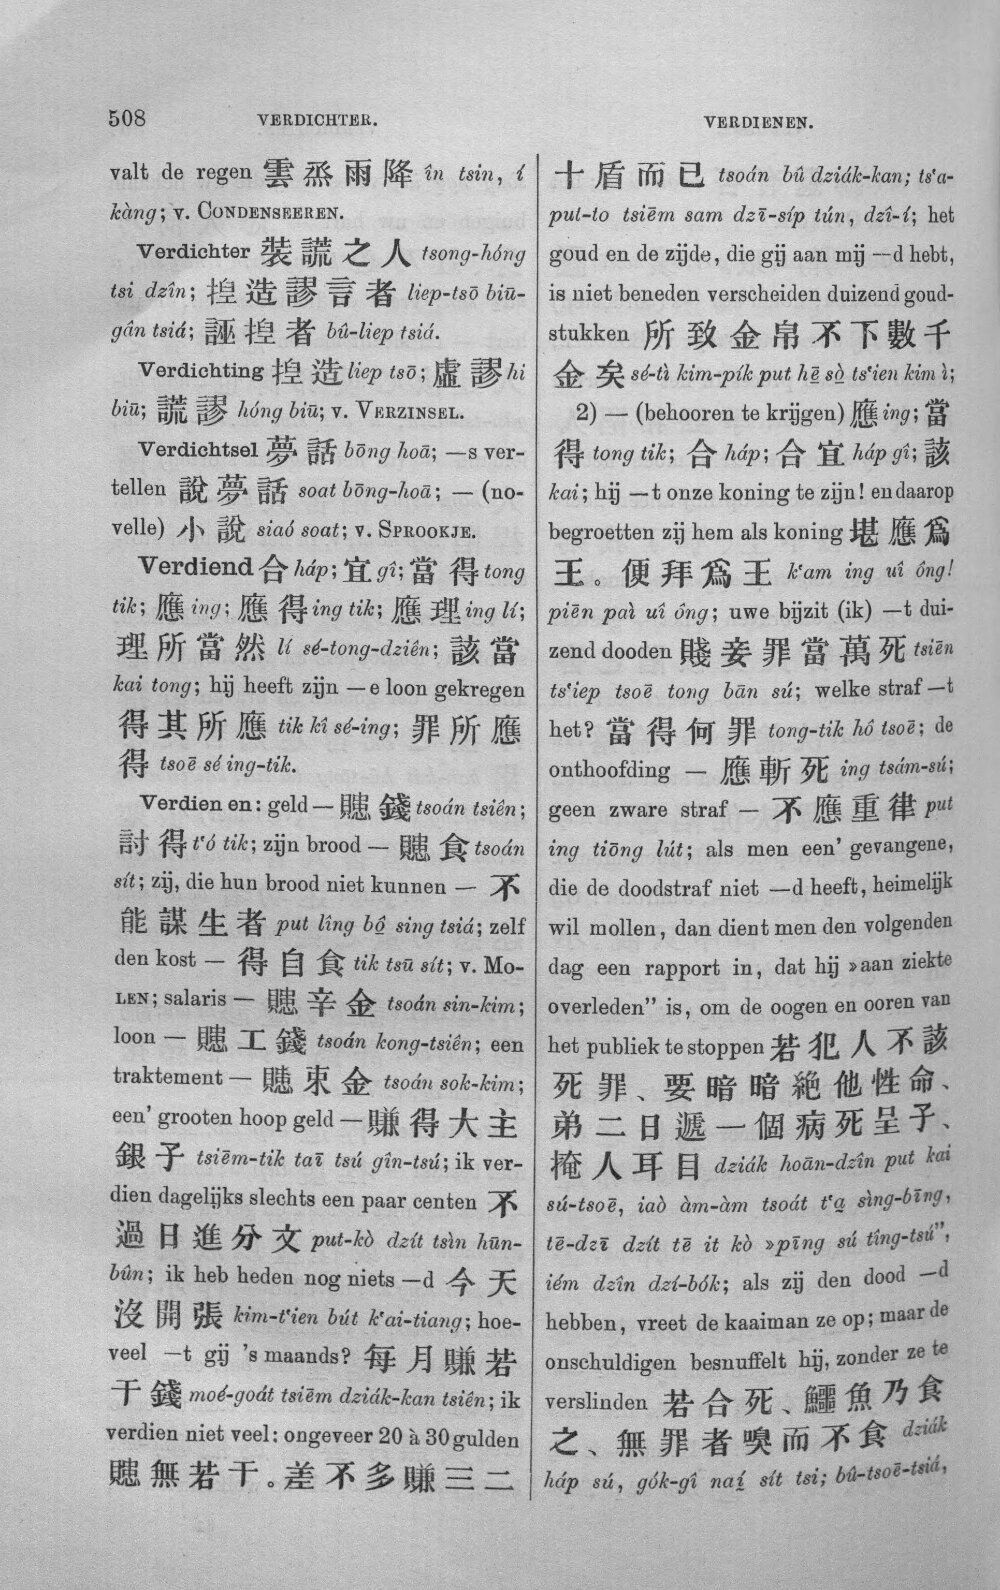 508
VERDICHTER.
VERDIENEN.
valt de regen 雲烝雨降 în tsin, í
kàng; v. CONDENSEEREN.
Verdichter 裝謊之人 tsong-hóng
tsi dzîn; 揑造謬言者 liep-tsō biū-
gân tsiá; 誣揑者 bû-liep tsiá.
Verdichting 揑造 liep tsō; 虛謬 hi
biū; 謊謬 hóng biū; v. VERZINSEL.
Verdichtsel 夢話 bōng hoā; —s ver-
tellen 說夢話 soat bōng-hoā; — (no-
velle) 小說 siaó soat; v. SPROOKJE.
Verdiend 合 háp; 宜 gî; 當得 tong
tik; 應 ing; 應得 ing tik; 應理 ing lí;
理所當然 lí sé-tong-dziên; 該當
kai tong; hij heeft zijn —e loon gekregen
得其所應 tik kî sé-ing; 罪所應
得 tsoē sé ing-tik.
Verdienen: geld — 賺錢 tsoán tsiên;
討得 tʻó tik; zijn brood — 賺食 tsoán
sít; zij, die hun brood niet kunnen — 不
能謀生者 put lîng bô sing tsiá; zelf
den kost — 得自食 tik tsū sít; v. MO-
LEN; salaris — 賺辛金 tsoán sin-kim;
loon — 賺工錢 tsoán kong-tsiên; een
traktement — 賺束金 tsoán sok-kim;
een' grooten hoop geld — 賺得大主
銀子 tsiēm-tik taī tsú gîn-tsú; ik ver-
dien dagelijks slechts een paar centen 不
過日進分文 put-kò dzít tsìn hūn-
bûn; ik heb heden nog niets —d 今天
沒開張 kim-tʻien bút kʻai-tiang; hoe-
veel —t gij 's maands? 每月賺若
干錢 moé-goát tsiēm dziák-kan tsiên; ik
verdien niet veel: ongeveer 20 à 30 gulden
賺無若干。差不多賺三二
十盾而已 tsoán bû dziák-kan; tsʻa-
put-to tsiēm sam dzī-síp tún, dzî-í; het
goud en de zijde, die gij aan mij —d hebt,
is niet beneden verscheiden duizend goud-
stukken 所致金帛不下數千
金矣 sé-tì kim-pík put hē sò tsʻien kim ì;
2) — (behooren te krijgen) 應 ing; 當
得 tong tik; 合 háp; 合宜 háp gî; 該
kai; hij —t onze koning te zijn! en daarop
begroetten zij hem als koning 堪應爲
王。便拜爲王 kʻam ing uî ông!
piēn paì uî óng; uwe bijzit (ik) —t dui-
zend dooden 賤妾罪當萬死 tsiēn
tsʻiep tsoē tong bān sú; welke straf —t
het? 當得何罪 tong-tik hô tsoē; de
onthoofding — 應斬死 ing tsám-sú;
geen zware straf — 不應重律 put
ing tiōng lút; als men een' gevangene,
die de doodstraf niet —d heeft, heimelijk
wil mollen, dan dient men den volgenden
dag een rapport in, dat hij »aan ziekte
overleden" is, om de oogen en ooren van
het publiek te stoppen 若犯人不該
死罪、要暗暗絶他性命、
弟二日遞一個病死呈子、
掩人耳目 dziák hoān-dzîn put kai
sú-tsoē, iaò àm-àm tsoát tʻa sìng-bīng,
tē-dzī dzít tē it kò »pīng sú tîng-tsú",
iém dzîn dzí-bók; als zij den dood —d
hebben, vreet de kaaiman ze op; maar de
onschuldigen besnuffelt hij, zonder ze te
verslinden 若合死、鱷魚乃食
之、無罪者嗅而不食 dziák
háp sú, gók-gî naí sít tsi; bû-tsoē-tsiá,